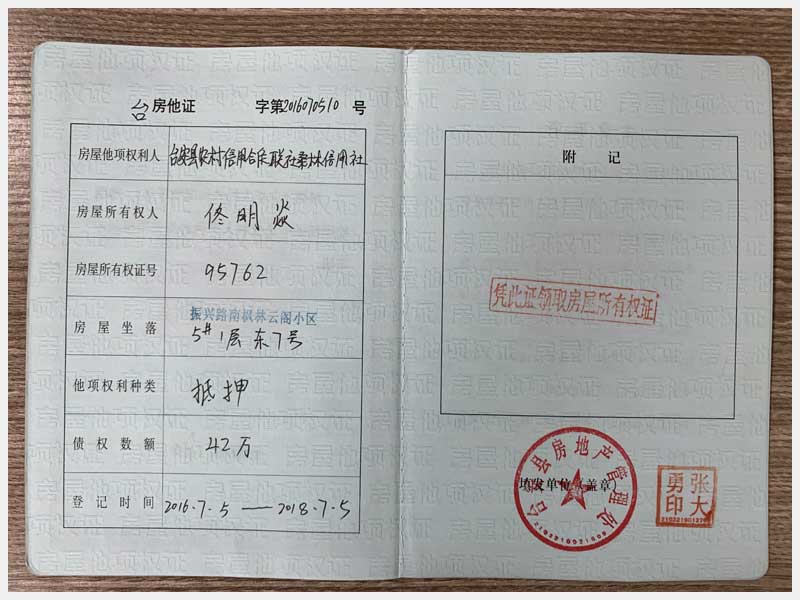 台房他证 字第2016070510 号
房屋他项权利人 台安县农村信用合作联社桑林信用社
房屋所有权人 佟明焱
房屋所有权证号 95762
房屋坐落 振兴路南枫林云阁小区
5#1层东7号
他项权利种类 抵押
债权数额 42万
登记时间 2016.7.5 — 2018.7.5
附 记
凭此证领取房屋所有权证
填发单位（盖章）
台安县房地产管理处
张大
勇印